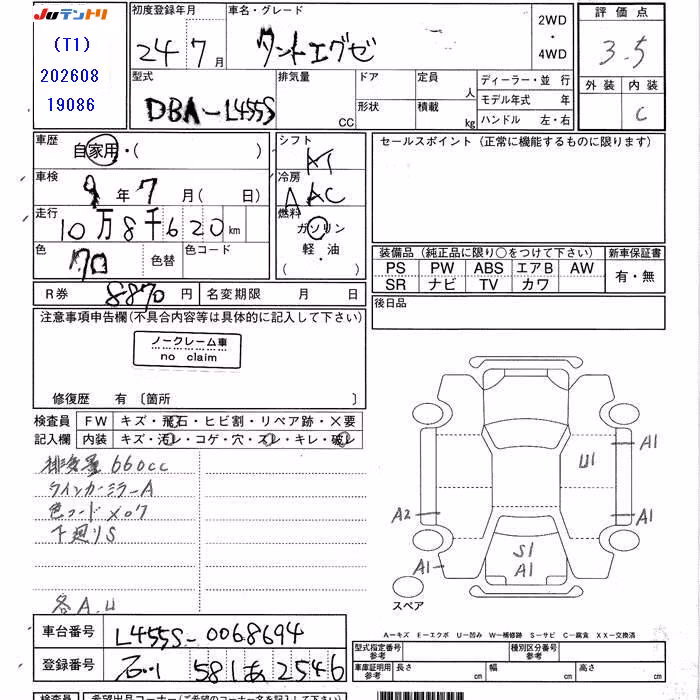 JUテントリ
(T1)
202608
19086
初度登録年月
24年7月
車名・グレード
タントエグゼ
2WD
・
4WD
評価点
3.5
外装 内装
C
型式
DBA-L455S
排気量
CC
ドア
形状
定員
人
積載
kg
ディーラー・並行
モデル年式 年
ハンドル 左・右
車歴
自家用・( )
シフト
AT
車検
9年7月(日)
冷房
AAC
走行
10万8千620km
燃料
ガソリン
軽・油
( ・ )
色
色替
色コード
R券
8870円
名変期限 月 日
セールスポイント(正常に機能するものに限ります)
装備品(純正品に限り○をつけて下さい)
新車保証書
PS PW ABS エアB AW
SR ナビ TV カワ
有・無
後日品
注意事項申告欄(不具合内容等は具体的に記入して下さい)
ノークレーム車
no claim
修復歴 有〔箇所 〕
検査員
記入欄
FW キズ・飛石・ヒビ割・リペア跡・×要
内装 キズ・汚レ・コゲ・穴・スレ・キレ・破レ
排気量 660cc
ウインカーミラーA
色コード X07
下廻りS
各A.U
A1
U1
A2
A1
S1
A1
A1
スペア
A-キズ E-エクボ U-凹み W-補修跡 S-サビ C-腐食 XX-交換済
車台番号
L455S-0068694
登録番号
石川 581あ2546
型式指定番号
参考
種別区分番号
参考
車庫証明用
参考
長さ cm
幅 cm
高さ cm
検査員
希望出品コーナー(ご希望のコーナー名をご記入下さい)